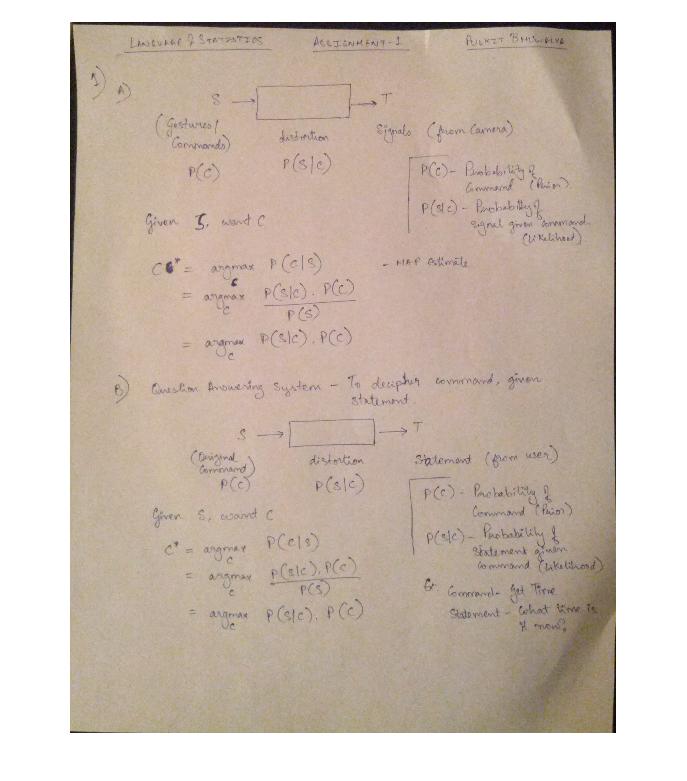 LANGUAGE & STATISTICS ASSIGNMENT-1
1)
A)
S → → T
(Gestures/ Commands) distortion Signals (from Camera)
P(C) P(S|C)
P(C) - Probability of
Command (Prior).
P(S|C) - Probability of
signal given command
(Likelihood).
Given S, want C
C* = argmax P(C|S) - MAP Estimate
C
= argmax P(S|C) . P(C)
C P(S)
= argmax P(S|C) . P(C)
C
B) Question Answering System - To decipher command, given
statement.
S → → T
(Original Command) distortion Statement (from user)
P(C) P(S|C)
P(C) - Probability of
Command (Prior)
P(S|C) - Probability of
statement given
command (Likelihood)
Given S, want C
C* = argmax P(C|S)
C
= argmax P(S|C) . P(C)
C P(S)
= argmax P(S|C) . P(C)
C
Command - Get Time
Statement - What time is
it now?